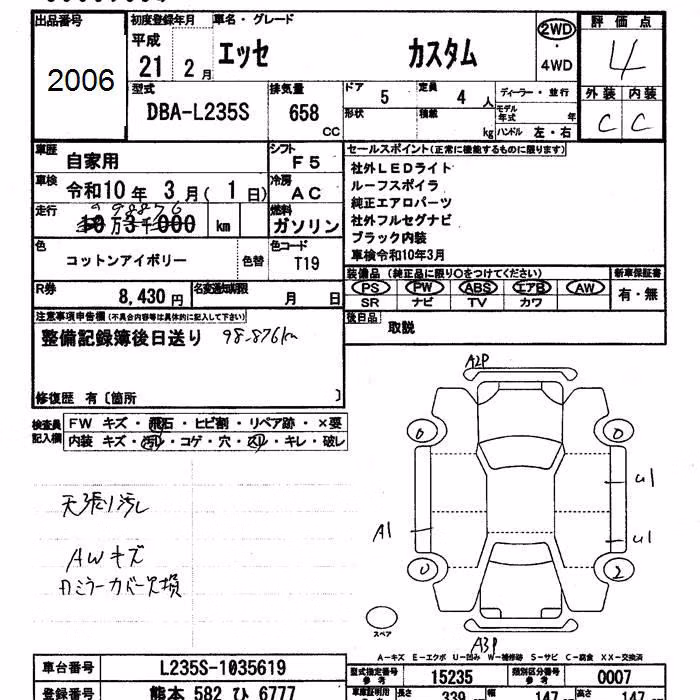 出品番号 初度登録年月 車名・グレード 評価点
2006 平成 21 2月 エッセ カスタム 2WD・4WD 4
型式 排気量 ドア 5 定員 4人 ディーラー・並行 外装 内装
DBA-L235S 658 CC 形状 積載 kg モデル年式 年 ハンドル 左・右 C C
車歴 自家用 シフト F5 セールスポイント(正常に機能するものに限ります)
車検 令和10年 3月(1日) 冷房 AC 社外LEDライト
ルーフスポイラ
走行 98876 10万3千000 km 燃料 ガソリン 純正エアロパーツ
社外フルセグナビ
色 コットンアイボリー 色替 色コード T19 ブラック内装
車検令和10年3月
R券 8,430円 名変通知期限 月 日 装備品(純正品に限り○をつけてください) 新車保証書
PS PW ABS エアB AW 有・無
SR ナビ TV カワ
注意事項申告欄(不具合内容等は具体的に記入して下さい) 後日品 取説
整備記録簿後日送り 98-876km
修復歴 有〔箇所 〕
検査員記入欄 FW キズ・飛石・ヒビ割・リペア跡・×要
内装 キズ・汚レ・コゲ・穴・スレ・キレ・破レ
A2P
0 0
U1
天張り汚レ
A1 U1
AWキズ
0 2
カミラーカバー欠損
スペア
A3P
A-キズ E-エクボ U-凹み W-補修跡 S-サビ C-腐食 XX-交換済
車台番号 L235S-1035619 型式指定番号 参考 15235 類別区分番号 参考 0007
登録番号 熊本 582 ひ 6777 車庫証明用 参考 長さ 339 幅 147 高さ 147